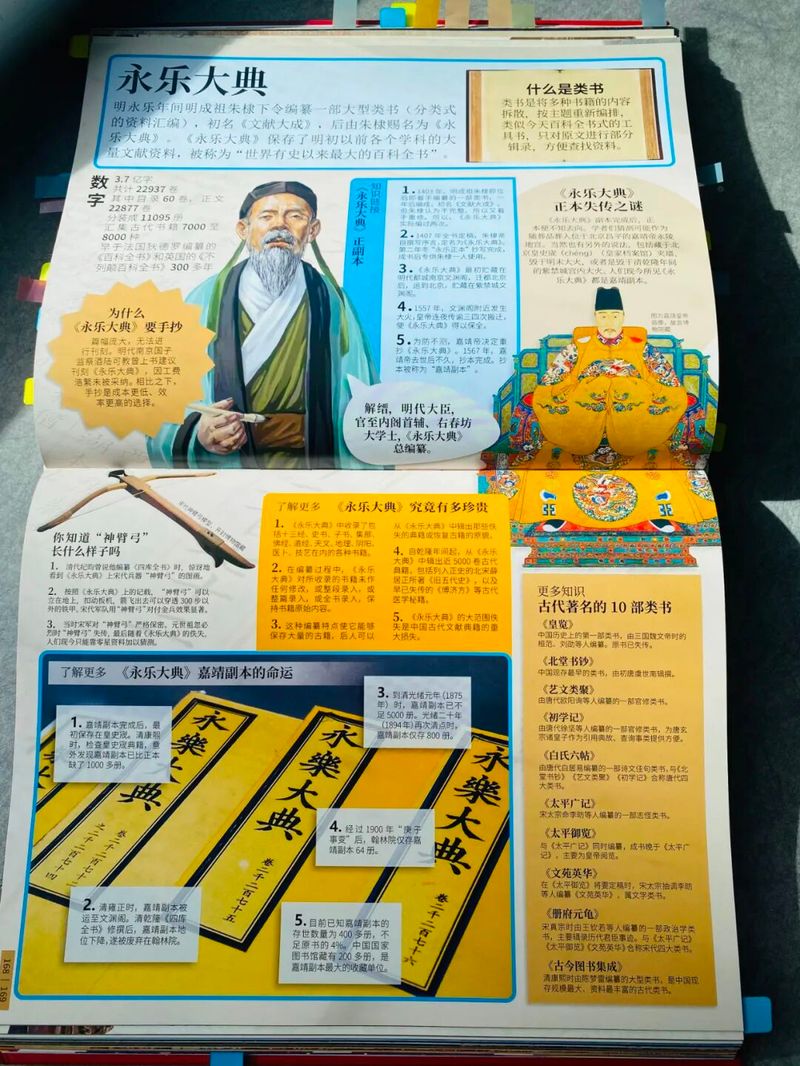 永乐大典
明永乐年间明成祖朱棣下令编纂一部大型类书（分类式
的资料汇编），初名《文献大成》，后由朱棣赐名为《永
乐大典》。《永乐大典》保存了明初以前各个学科的大
量文献资料，被称为“世界有史以来最大的百科全书”。
什么是类书
类书是将多种书籍的内容
拆散，按主题重新编排，
类似今天百科全书式的工
具书，只对原文进行部分
辑录，方便查找资料。
数字
3.7 亿字
共计 22937 卷
其中目录 60 卷，正文
22877 卷
分装成 11095 册
汇集古代书籍 7000 至
8000 种
早于法国狄德罗编纂的
《百科全书》和英国的《不
列颠百科全书》300 多年
为什么
《永乐大典》要手抄
篇幅庞大，无法进
行刊刻。明代南京国子
监祭酒陆可教曾上书建议
刊刻《永乐大典》，因工费
浩繁未被采纳。相比之下，
手抄是成本更低、效
率更高的选择。
知识链接
《永乐大典》正副本
1. 1403 年，明成祖朱棣即位
后即着手编纂的一部类书，一
年后编成，初名《文献大成》。
但朱棣认为不完整，所以又着
手重修。所以，《永乐大典》
实际编过两次。
2. 1407 年全书定稿，朱棣亲
自撰写序言，定名为《永乐大典》。
第二年冬“永乐正本”抄写完成，
成书后专供朱棣一人使用。
3. 《永乐大典》最初贮藏在
明代都城南京文渊阁，迁都北京
后，运到北京，贮藏在紫禁城文
渊阁。
4. 1557 年，文渊阁附近发生
大火，皇帝连夜传谕三四次搬迁，
使《永乐大典》得以保全。
5. 为防不测，嘉靖帝决定重
抄《永乐大典》。1567 年，嘉
靖帝去世后不久，抄本完成。抄
本被称为“嘉靖副本”。
《永乐大典》
正本失传之谜
《永乐大典》副本完成后，正
本便不知去向。学者们猜测可能作为
随葬品葬入位于北京昌平的嘉靖帝永陵
地宫。当然也有另外的说法，包括藏于北
京皇史宬（chéng）（皇家档案馆）夹墙、
毁于明末大火，或者是毁于清乾隆年间
的紫禁城宫内大火。人们现今所见《永
乐大典》都是嘉靖副本。
图为嘉靖皇帝
画像，
解缙，明代大臣，
官至内阁首辅、右春坊
大学士，《永乐大典》
总编纂。
你知道“神臂弓”
长什么样子吗
1. 清代纪昀曾说他编纂《四库全书》时，惊讶地
看到《永乐大典》上宋代兵器“神臂弓”的图画。
2. 按照《永乐大典》上的记载，“神臂弓”可以
立在地上，扣动扳机，箭飞出去可以穿透 300 步以
外的铁甲，宋代军队用“神臂弓”对付金兵效果显著。
3. 当时宋军对“神臂弓”严格保密。元世祖忽必
烈时“神臂弓”失传，最后随着《永乐大典》的佚失，
人们现今只能靠零星资料加以猜测。
了解更多 《永乐大典》究竟有多珍贵
1. 《永乐大典》中收录了包
括十三经、史书、子书、集部、
佛经、道经、天文、地理、阴阳、
医卜、技艺在内的各种书籍。
2. 在编纂过程中，《永乐
大典》对所收录的书籍未作
任何修改，或整段录入，或
整篇录入，或全书录入，保
持书籍原始内容。
3. 这种编纂特点使它能够
保存大量的古籍，后人可以
从《永乐大典》中辑出那些佚
失的典籍或恢复古籍的原貌。
4. 自乾隆年间起，从《永乐
大典》中辑出近 5000 卷古代
典籍，包括列入正史的北宋薛
居正所著《旧五代史》，以及
早已失传的《博济方》等古代
医学秘籍。
5. 《永乐大典》的大范围佚
失是中国古代文献典籍的重
大损失。
了解更多 《永乐大典》嘉靖副本的命运
1. 嘉靖副本完成后，最
初保存在皇史宬。清康熙
时，检查皇史宬典籍，意
外发现嘉靖副本已比正本
缺了 1000 多册。
2. 清雍正时，嘉靖副本被
运至文渊阁。清乾隆《四库
全书》修撰后，嘉靖副本地
位下降，遂被废弃在翰林院。
3. 到清光绪元年（1875
年）时，嘉靖副本已不
足 5000 册。光绪二十年
（1894 年）再次清点时，
嘉靖副本仅存 800 册。
4. 经过 1900 年“庚子
事变”后，翰林院仅存嘉
靖副本 64 册。
5. 目前已知嘉靖副本的
存世数量为 400 多册，不
足原书的 4%。中国国家
图书馆藏有 200 多册，是
嘉靖副本最大的收藏单位。
永樂大典
卷二千二百七十五
永樂大典
卷二千二百七十六
永樂大典
更多知识
古代著名的 10 部类书
《皇览》
中国历史上的第一部类书，由三国魏文帝时的
桓范、刘劭等人编纂。原书已失传。
《北堂书钞》
中国现存最早的类书，由初唐虞世南辑撰。
《艺文类聚》
由唐代欧阳询等人编纂的一部官修类书。
《初学记》
由唐代徐坚等人编纂的一部官修类书，为唐玄
宗诸皇子作为引用典故、查询事类提供方便。
《白氏六帖》
由唐代白居易编纂的一部诗文佳句类书，与《北
堂书钞》《艺文类聚》《初学记》合称唐代四
大类书。
《太平广记》
宋太宗命李昉等人编纂的一部志怪类书。
《太平御览》
与《太平广记》同时编纂，成书晚于《太平广
记》，主要为皇帝阅览。
《文苑英华》
在《太平御览》将要定稿时，宋太宗抽调李昉
等人编纂《文苑英华》，属文学类书。
《册府元龟》
宋真宗时由王钦若等人编纂的一部政治学类
书，主要辑录历代君臣事迹。与《太平广记》
《太平御览》《文苑英华》合称宋代四大类书。
《古今图书集成》
清康熙时由陈梦雷编纂的大型类书，是中国现
存规模最大、资料最丰富的古代类书。
168 | 169